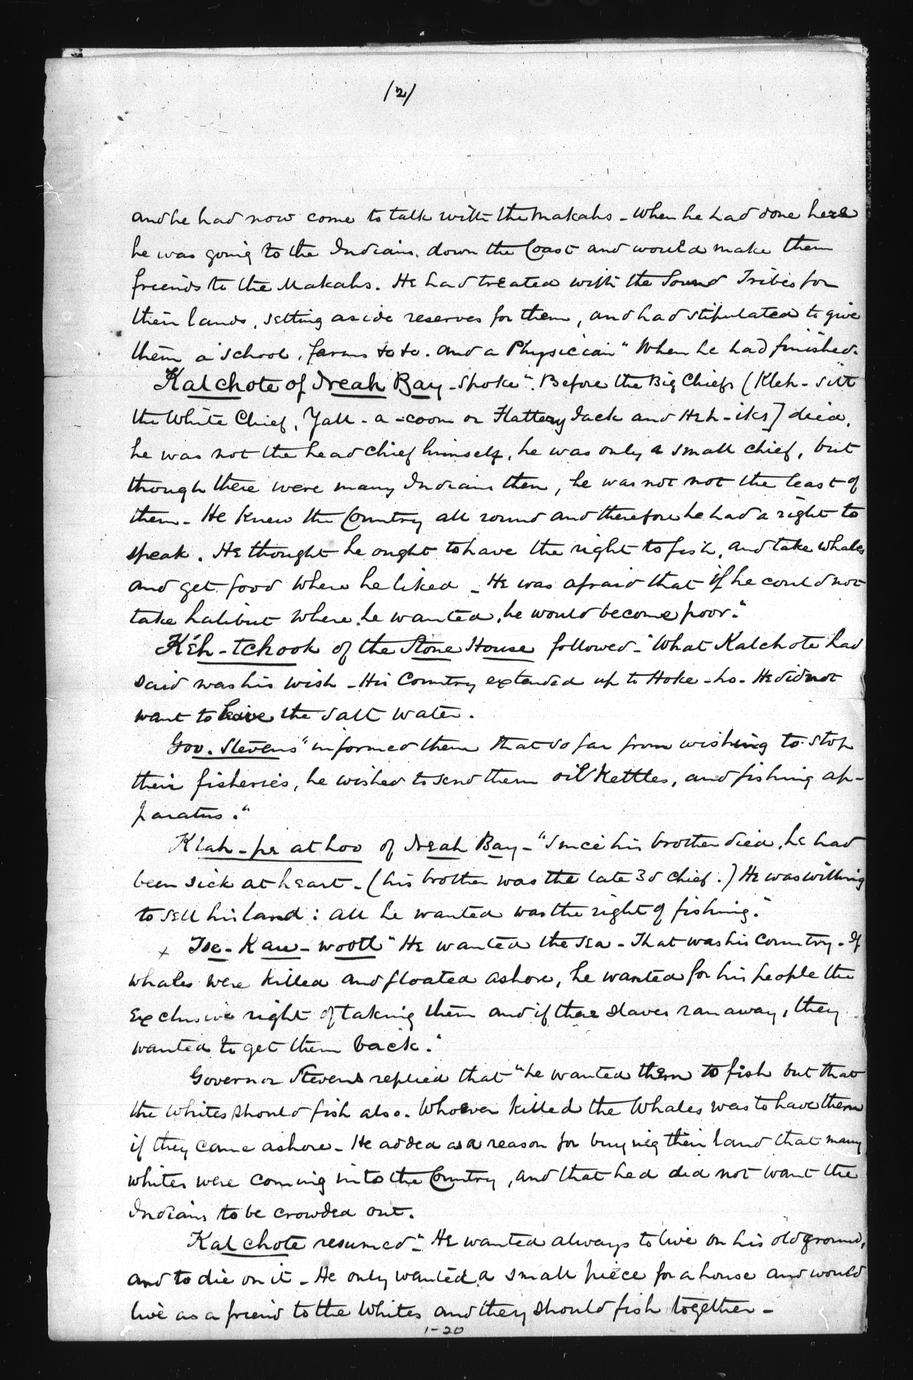 /2/
and he had now come to talk with the Makahs - When he had done here
he was going to the Indians down the Coast and would make them
friends to the Makahs. He had treated with the Sound Tribes for
their lands, setting aside reserves for them, and had stipulated to give
them a school, farms &c &c. and a Physician" When he had finished.
Kalchote of Neah Bay - spoke". Before the Big Chiefs (Kleh - sitt
the White Chief, Yall - a - coom or Flattery Jack and Heh - iks] died,
he was not the head chief himself, he was only a small chief, but
though there were many Indians then, he was not not the least of
them - He knew the Country all round and therefore he had a right to
speak. He thought he ought to have the right to fish, and take whales
and get food where he liked - He was afraid that if he could not
take halibut where he wanted, he would become poor."
Keh-tchook of the Stone House followed - "What Kalchote had
said was his wish - His Country extended up to Hoke-ho. He did not
want to leave the salt water.
Gov. Stevens "informed them that so far from wishing to stop
their fisheries, he wished to send them oil Kettles, and fishing ap-
paratus."
Klah-pe at hoo of Neah Bay - "Since his brother died, he had
been sick at heart - (his brother was the late 3d chief.) He was willing
to sell his land: all he wanted was the right of fishing."
x Tse-Kau-wootl "He wanted the sea - That was his country - If
whales were killed and floated ashore, he wanted for his people the
Exclusive right of taking them and if their Slaves ran away, they
wanted to get them back."
Governor Stevens replied that "he wanted them to fish but that
the whites should fish also. Whoever killed the Whales was to have them
if they came ashore - He added as a reason for buying their land that many
whites were coming into the Country, and that hed did not want the
Indians to be crowded out.
Kal chote resumed - "He wanted always to live on his old ground,
and to die on it - He only wanted a small piece for a house and would
live as a friend to the Whites and they should fish together -
1-20